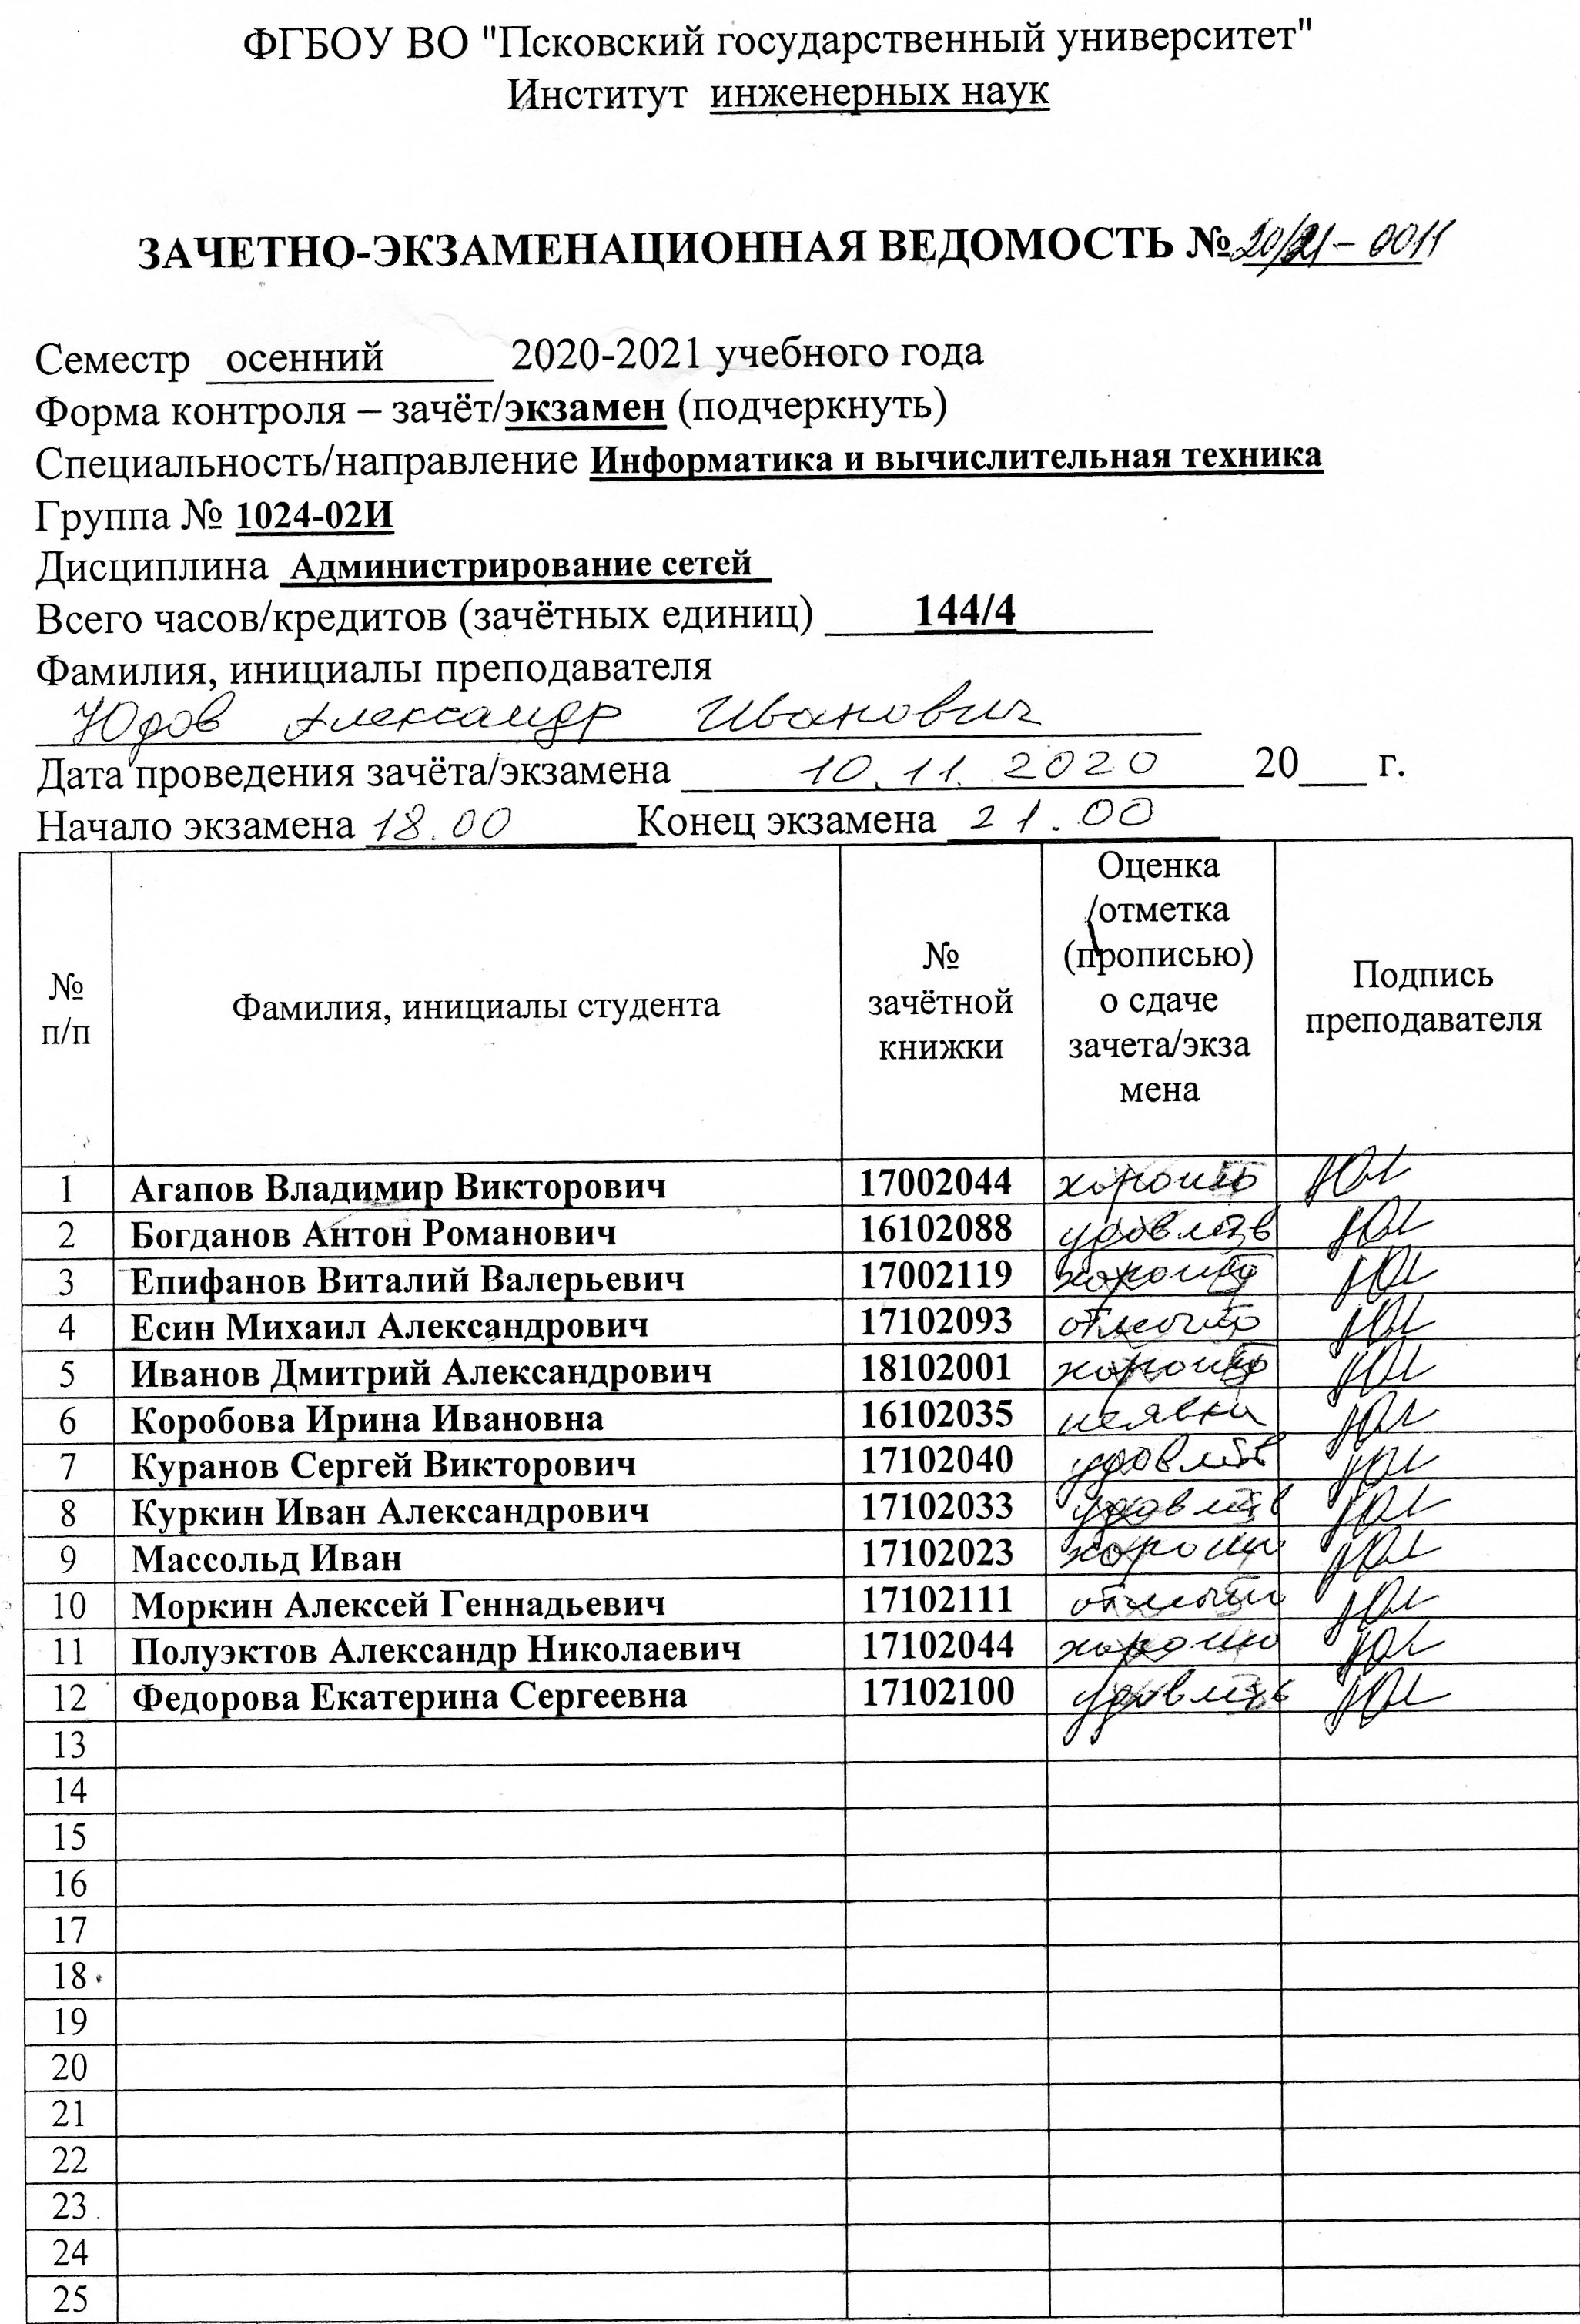 ФГБОУ ВО "Псковский государственный университет"
Институт инженерных наук
ЗАЧЕТНО-ЭКЗАМЕНАЦИОННАЯ ВЕДОМОСТЬ № 20/21-0011
Семестр осенний 2020-2021 учебного года
Форма контроля – зачёт/экзамен (подчеркнуть)
Специальность/направление Информатика и вычислительная техника
Группа № 1024-02И
Дисциплина Администрирование сетей
Всего часов/кредитов (зачётных единиц) 144/4
Фамилия, инициалы преподавателя
Юдов Александр Иванович
Дата проведения зачёта/экзамена 10.11.2020 20___ г.
Начало экзамена 18.00 Конец экзамена 21.00
№ п/п Фамилия, инициалы студента № зачётной книжки Оценка /отметка (прописью) о сдаче зачета/экзамена Подпись преподавателя
1 Агапов Владимир Викторович 17002044 хорошо
2 Богданов Антон Романович 16102088 удовлетв
3 Епифанов Виталий Валерьевич 17002119 хорошо
4 Есин Михаил Александрович 17102093 отлично
5 Иванов Дмитрий Александрович 18102001 хорошо
6 Коробова Ирина Ивановна 16102035 неявка
7 Куранов Сергей Викторович 17102040 удовлетв
8 Куркин Иван Александрович 17102033 удовлетв
9 Массольд Иван 17102023 хорошо
10 Моркин Алексей Геннадьевич 17102111 отлично
11 Полуэктов Александр Николаевич 17102044 хорошо
12 Федорова Екатерина Сергеевна 17102100 удовлетв
13
14
15
16
17
18
19
20
21
22
23
24
25